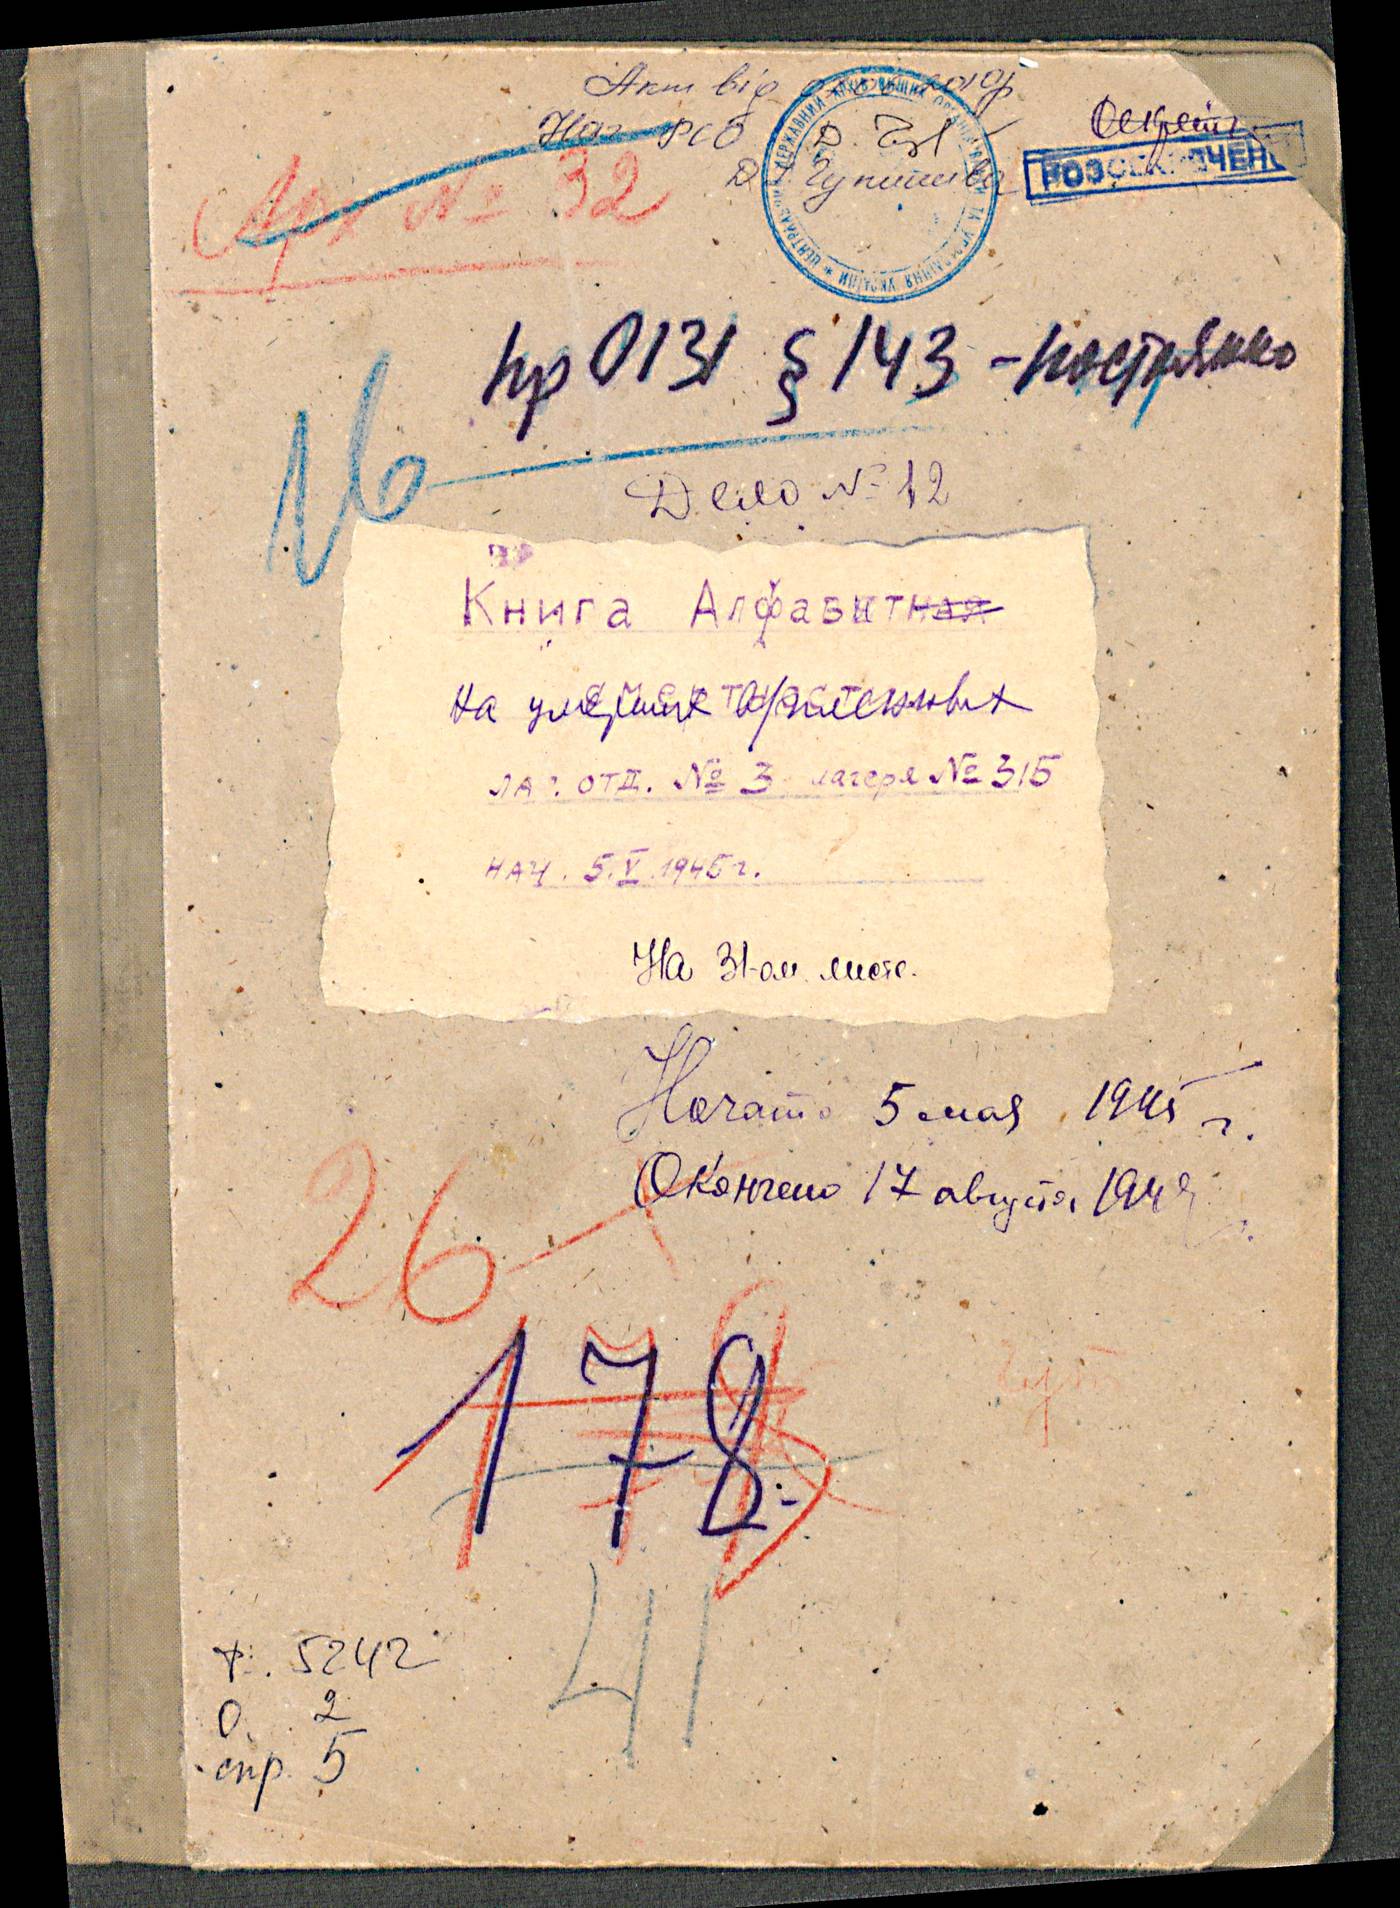 Акт від
Нач РСБ
Секретн
РОЗСЕКРЕЧЕНО
ЦЕНТРАЛЬНИЙ ДЕРЖАВНИЙ АРХІВ ВИЩИХ ОРГАНІВ ВЛАДИ ТА УПРАВЛІННЯ УКРАЇНИ
Арх № 32
пр 0131 § 143 - постоянно
16
Дело № 12
Книга Алфавит
на умерших
лаг. отд. № 3 лагеря № 315
нач. 5.V.1945 г.
На 31-ом листе.
Начато 5 мая 1945 г.
Окончено 17 августа
26
178
41
ф. 5242
О. 2
спр 5